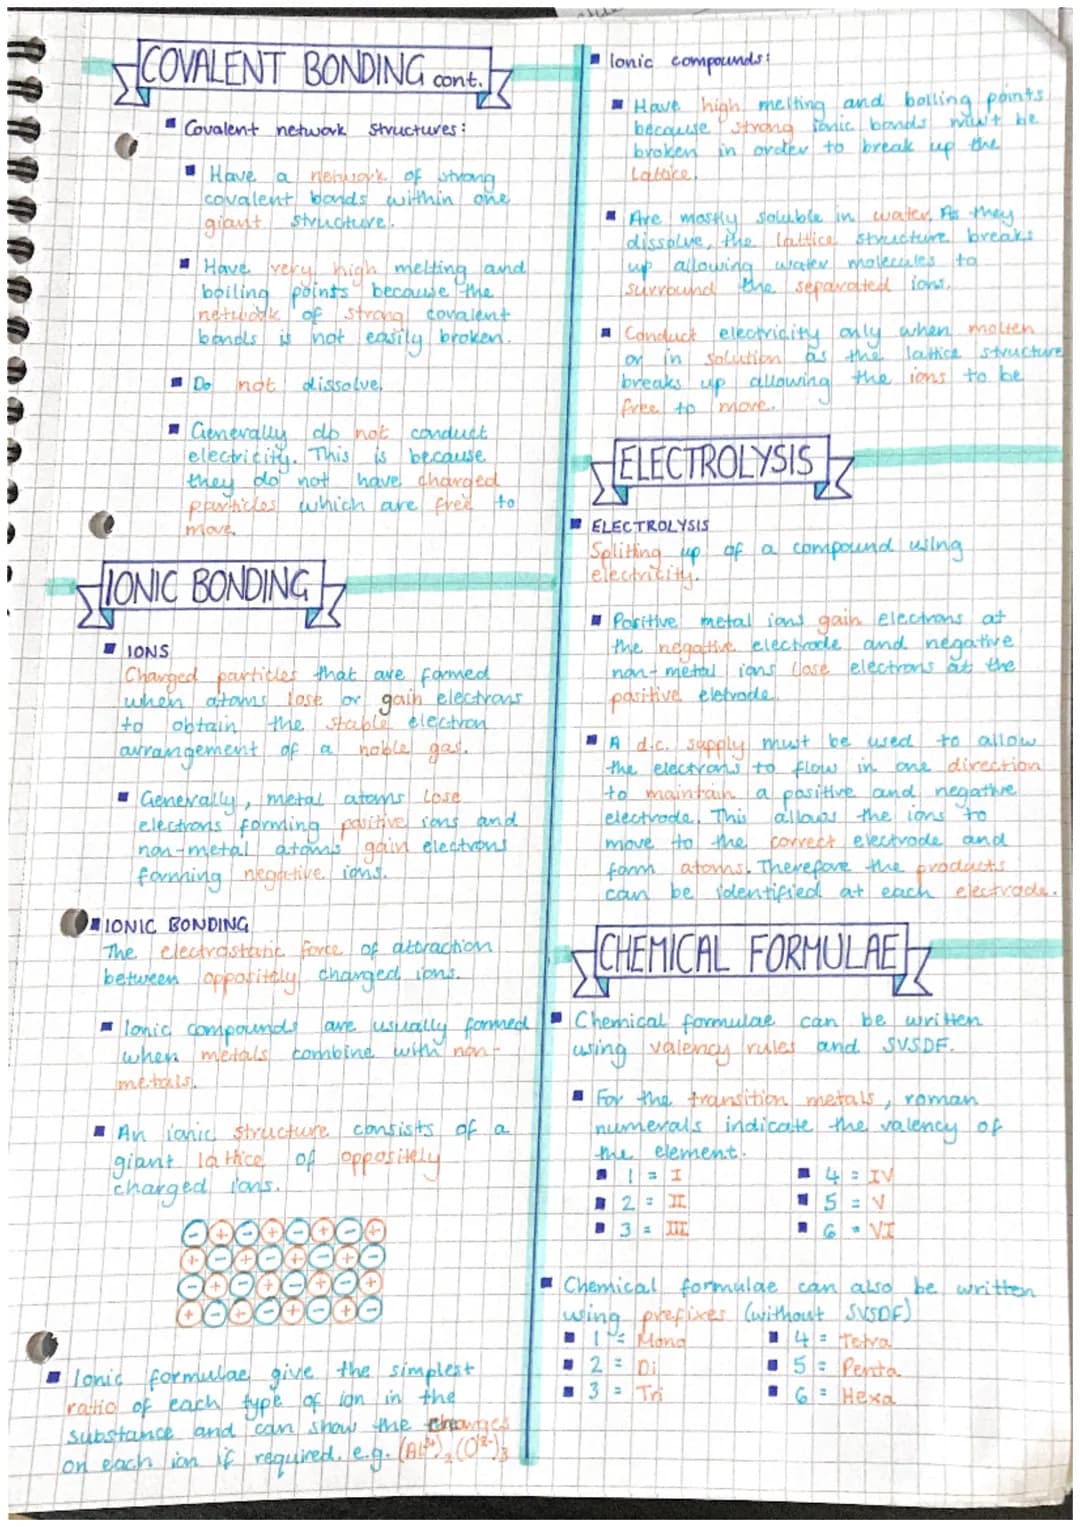 COVALENT BONDING cont.
Covalent network structures:
Have a network of strong
covalent bonds within one
giant structure.
Have very high melting and
boiling points because the
network of strong covalent
bonds is not easily broken.
Do not dissolve.
Generally do not conduct
electricity. This is because
they do not have charged
particles which are free to
move.
IONIC BONDING
IONS
Charged particles that are formed
when atoms lose or gain electrons
to obtain the stable electron
arrangement of a noble gas.
Generally, metal atoms lose
electrons forming positive ions and
non-metal atoms gain electrons
forming negative ions.
IONIC BONDING
The electrostatic force of attraction
between oppositely charged ions.
Ionic compounds are usually formed
when metals combine with non-
metals.
An ionic structure consists of a
giant lattice of oppositely
charged ions.
- + - + - + - +
+ - + - + - + -
- + - + - + - +
+ - + - + - + -
Ionic formulae give the simplest
ratio of each type of ion in the
substance and can show the charges
on each ion if required. e.g. (Al³⁺)₂(O²⁻)₃
Ionic compounds:
Have high melting and boiling points
because strong ionic bonds must be
broken in order to break up the
lattice.
Are mostly soluble in water. As they
dissolve, the lattice structure breaks
up allowing water molecules to
surround the separated ions.
Conduct electricity only when molten
or in solution as the lattice structure
breaks up allowing the ions to be
free to move.
ELECTROLYSIS
ELECTROLYSIS
Splitting up of a compound using
electricity.
Positive metal ions gain electrons at
the negative electrode and negative
non-metal ions lose electrons at the
positive eletrode.
A d.c. supply must be used to allow
the electrons to flow in one direction
to maintain a positive and negative
electrode. This allows the ions to
move to the correct electrode and
form atoms. Therefore the products
can be identified at each electrode.
CHEMICAL FORMULAE
Chemical formulae can be written
using valency rules and SVSDF.
For the transition metals, roman
numerals indicate the valency of
the element.
1 = I 4 = IV
2 = II 5 = V
3 = III 6 = VI
Chemical formulae can also be written
using prefixes (without SVSDF)
1 = Mono 4 = Tetra
2 = Di 5 = Penta
3 = Tri 6 = Hexa